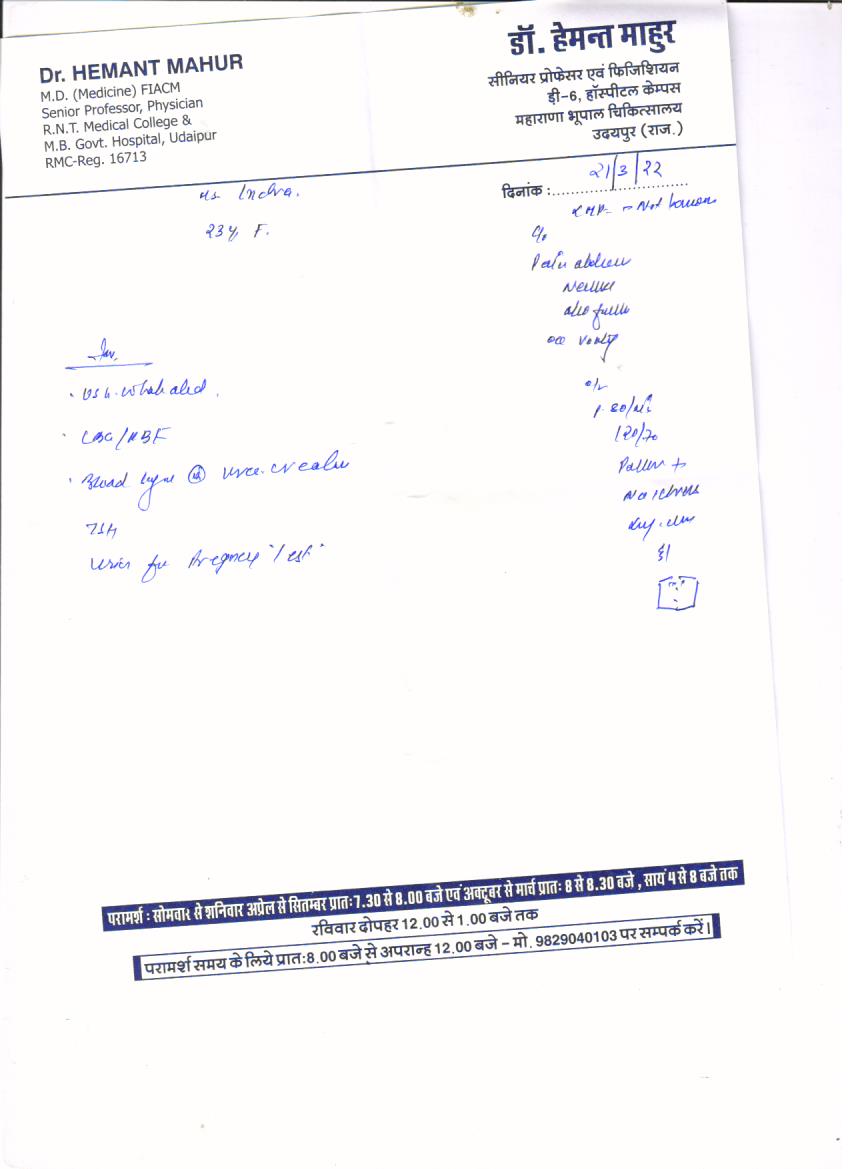 Dr. HEMANT MAHUR
M.D. (Medicine) FIACM
Senior Professor, Physician
R.N.T. Medical College &
M.B. Govt. Hospital, Udaipur
RMC-Reg. 16713
डॉ. हेमन्त माहुर
सीनियर प्रोफेसर एवं फिजिशियन
डी-6, हॉस्पीटल केम्पस
महाराणा भूपाल चिकित्सालय
उदयपुर (राज.)
दिनांक : 21/3/22
Ms Indra.
23y, F.
LMP - Not
c/o
Pain abdomen
Nausea
occ
o/e
120/70
Pallor +
No icterus
Inv.
USG. Whole abd.
CBC/MBF
Blood urea. creatin
TSH
Urine for Pregnancy Test
परामर्श : सोमवार से शनिवार अप्रेल से सितम्बर प्रातः 7.30 से 8.00 बजे एवं अक्टूबर से मार्च प्रातः 8 से 8.30 बजे , सायं 4 से 8 बजे तक
रविवार दोपहर 12.00 से 1.00 बजे तक
परामर्श समय के लिये प्रातः 8.00 बजे से अपरान्ह 12.00 बजे - मो. 9829040103 पर सम्पर्क करें।